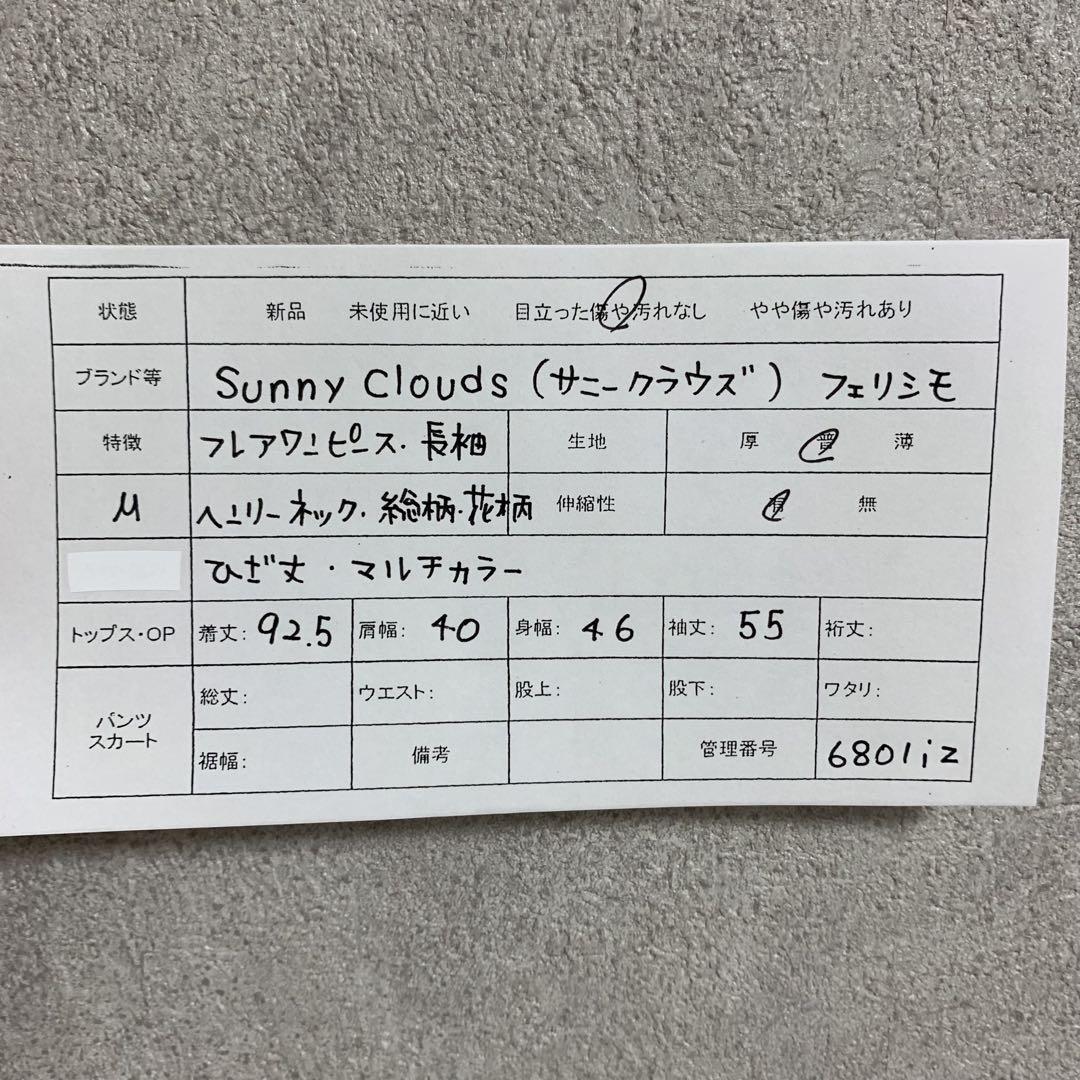 状態 新品 未使用に近い 目立った傷や汚れなし やや傷や汚れあり
ブランド等 Sunny Clouds (サニークラウズ) フェリシモ
特徴 フレアワンピース・長袖 生地 厚 普 薄
M ヘンリーネック・総柄・花柄 伸縮性 有 無
ひざ丈・マルチカラー
トップス・OP 着丈: 92.5 肩幅: 40 身幅: 46 袖丈: 55 裄丈:
パンツ スカート 総丈: ウエスト: 股上: 股下: ワタリ:
裾幅: 備考 管理番号 6801iz